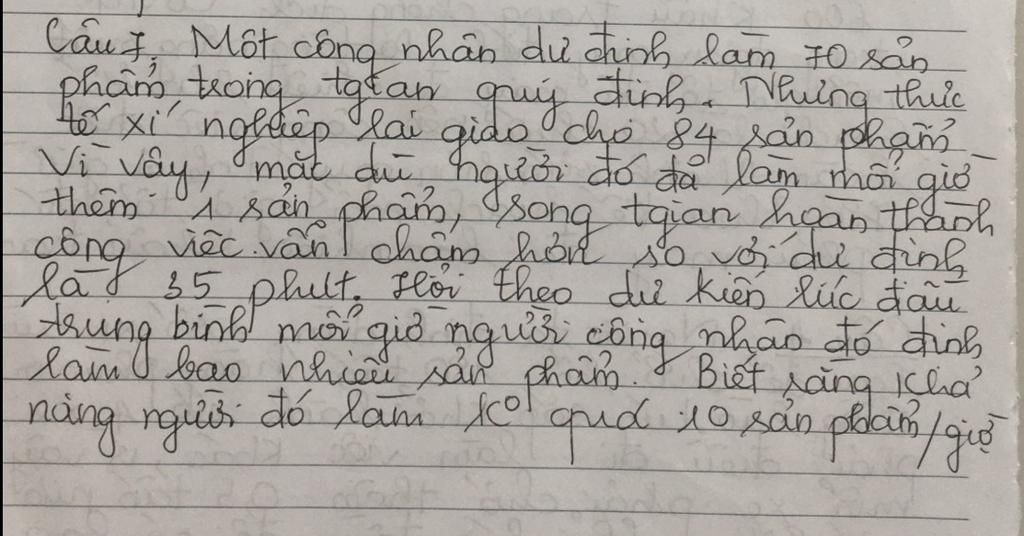 Câu 7. Một công nhân dự định làm 70 sản
phẩm trong tgian quy định. Nhưng thực
tế xí nghiệp lại giao cho 84 sản phẩm
Vì vậy, mặc dù người đó đã làm mỗi giờ
thêm 1 sản phẩm, song tgian hoàn thành
công việc vẫn chậm hơn so với dự định
là 35 phút. Hỏi theo dự kiến lúc đầu
trung bình mỗi giờ người công nhân đó định
làm bao nhiêu sản phẩm. Biết rằng khả
năng người đó làm ko quá 10 sản phẩm/giờ